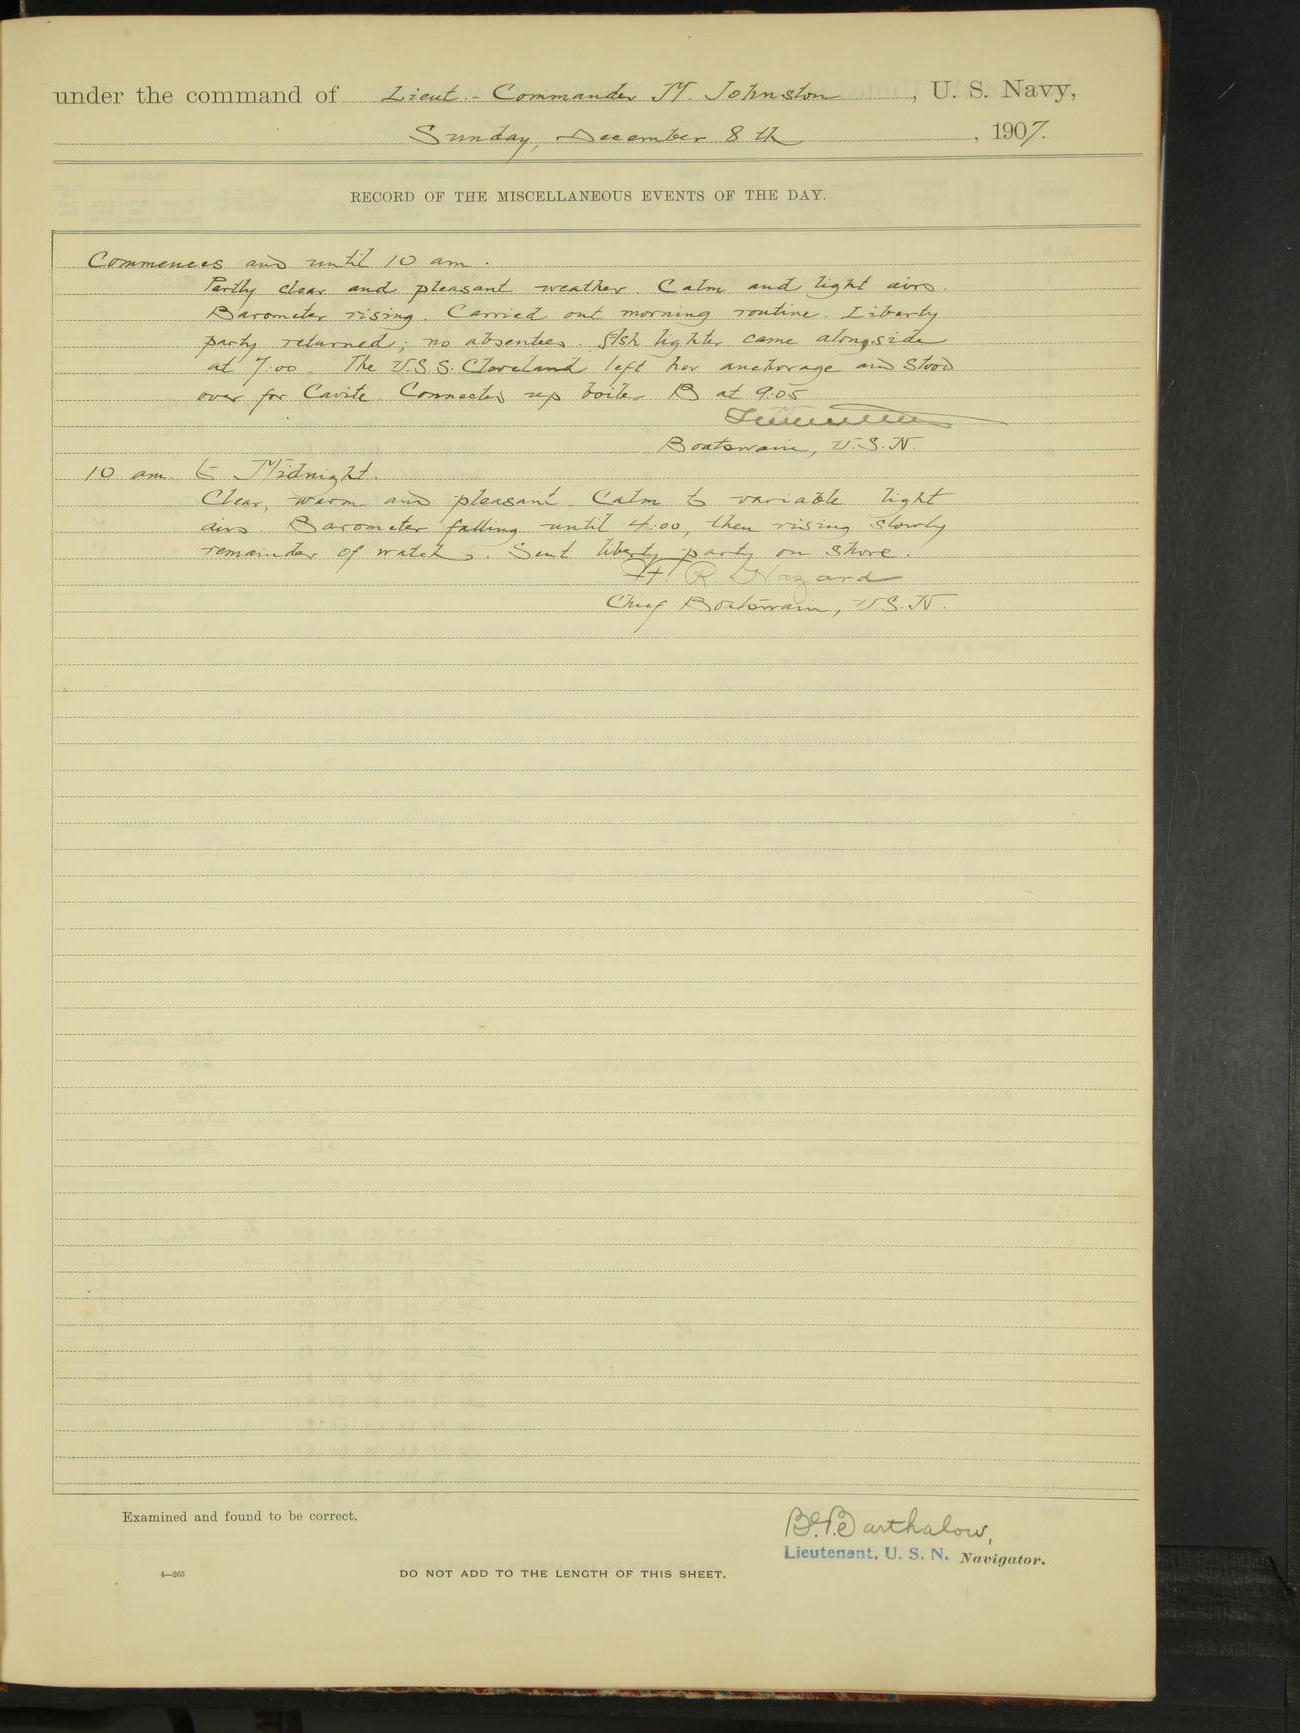 under the command of Lieut.-Commander M. Johnston, U. S. Navy,
Sunday, December 8th, 1907.
RECORD OF THE MISCELLANEOUS EVENTS OF THE DAY.
Commences and until 10 am.
Partly clear and pleasant weather. Calm and light airs.
Barometer rising. Carried out morning routine. Liberty
party returned; no absentees. Ash lighter came alongside
at 7:00. The U.S.S. Cleveland left her anchorage and stood
over for Cavite. Connected up boiler B at 9:05
Boatswain, U.S.N.
10 am. to Midnight.
Clear, warm and pleasant. Calm to variable light
airs. Barometer falling until 4:00, then rising slowly
remainder of watch. Sent liberty party on shore.
H. R. Hazard
Chief Boatswain, U.S.N.
Examined and found to be correct.
Barthalow,
Lieutenant, U. S. N. Navigator.
4—265
DO NOT ADD TO THE LENGTH OF THIS SHEET.